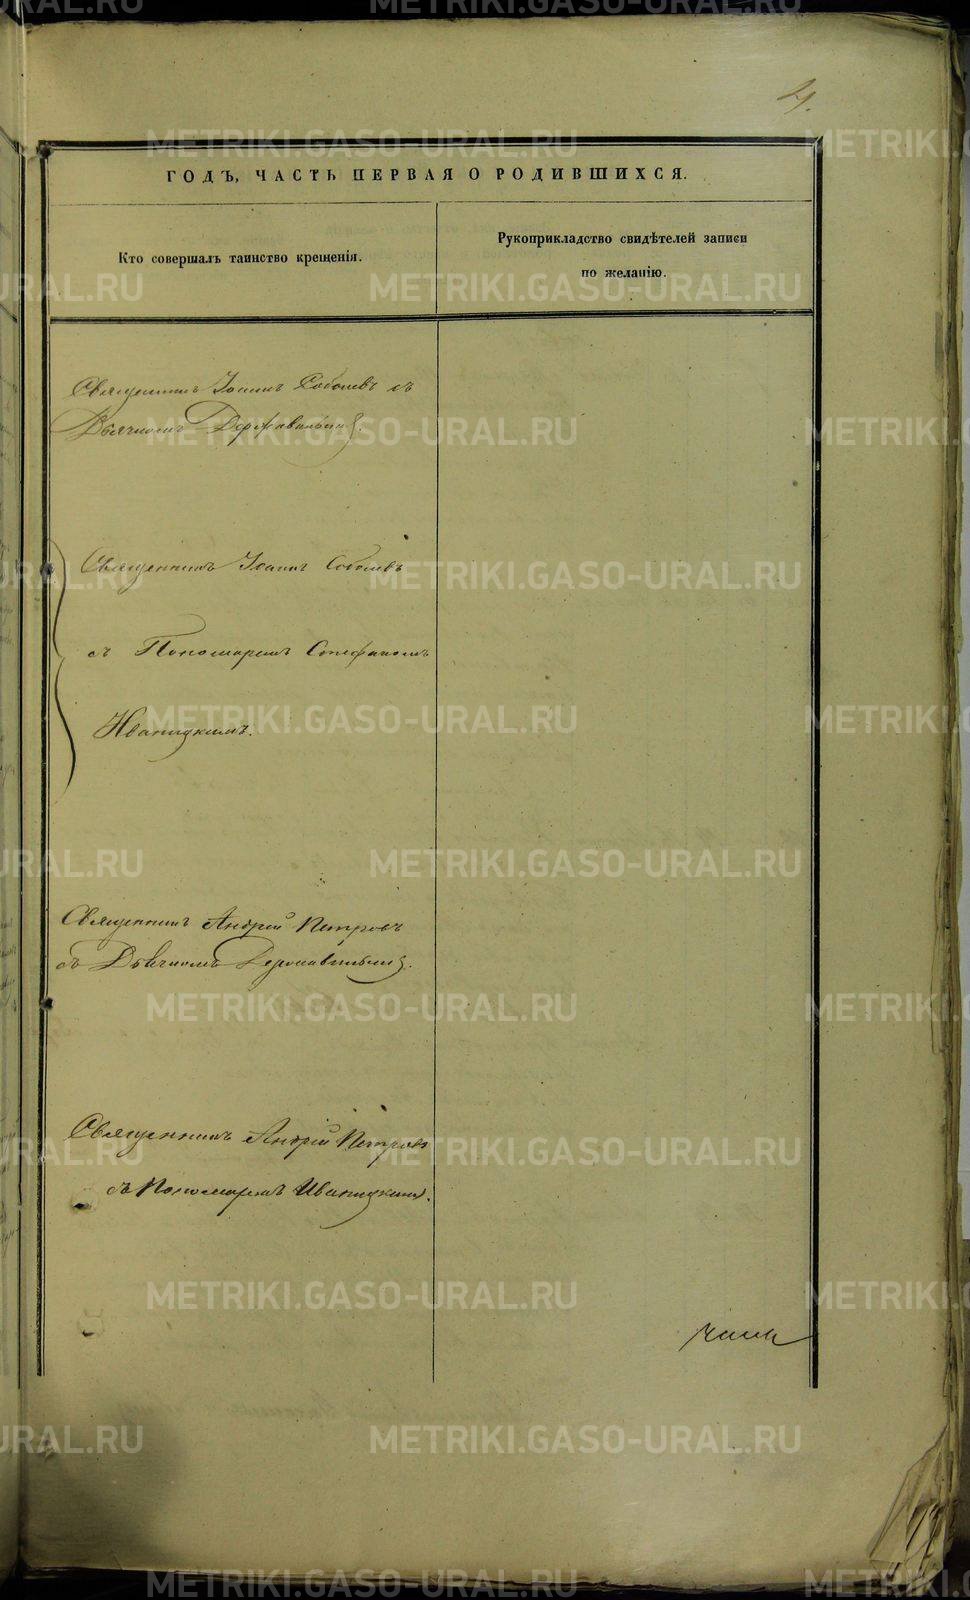 4.
ГОДЪ, ЧАСТЬ ПЕРВАЯ О РОДИВШИХСЯ.
Кто совершалъ таинство крещенія.
Рукоприкладство свидѣтелей записи
по желанію.
Священникъ Іоаннъ Соболевъ съ
Дьячкомъ
Священникъ Іоаннъ Соболевъ
съ Пономаремъ Стефаномъ
Иваницкимъ.
Священникъ Андрей Петровъ
съ Дьячкомъ
Священникъ Андрей Петровъ
съ Пономаремъ Иваницкимъ.
METRIKI.GASO-URAL.RU